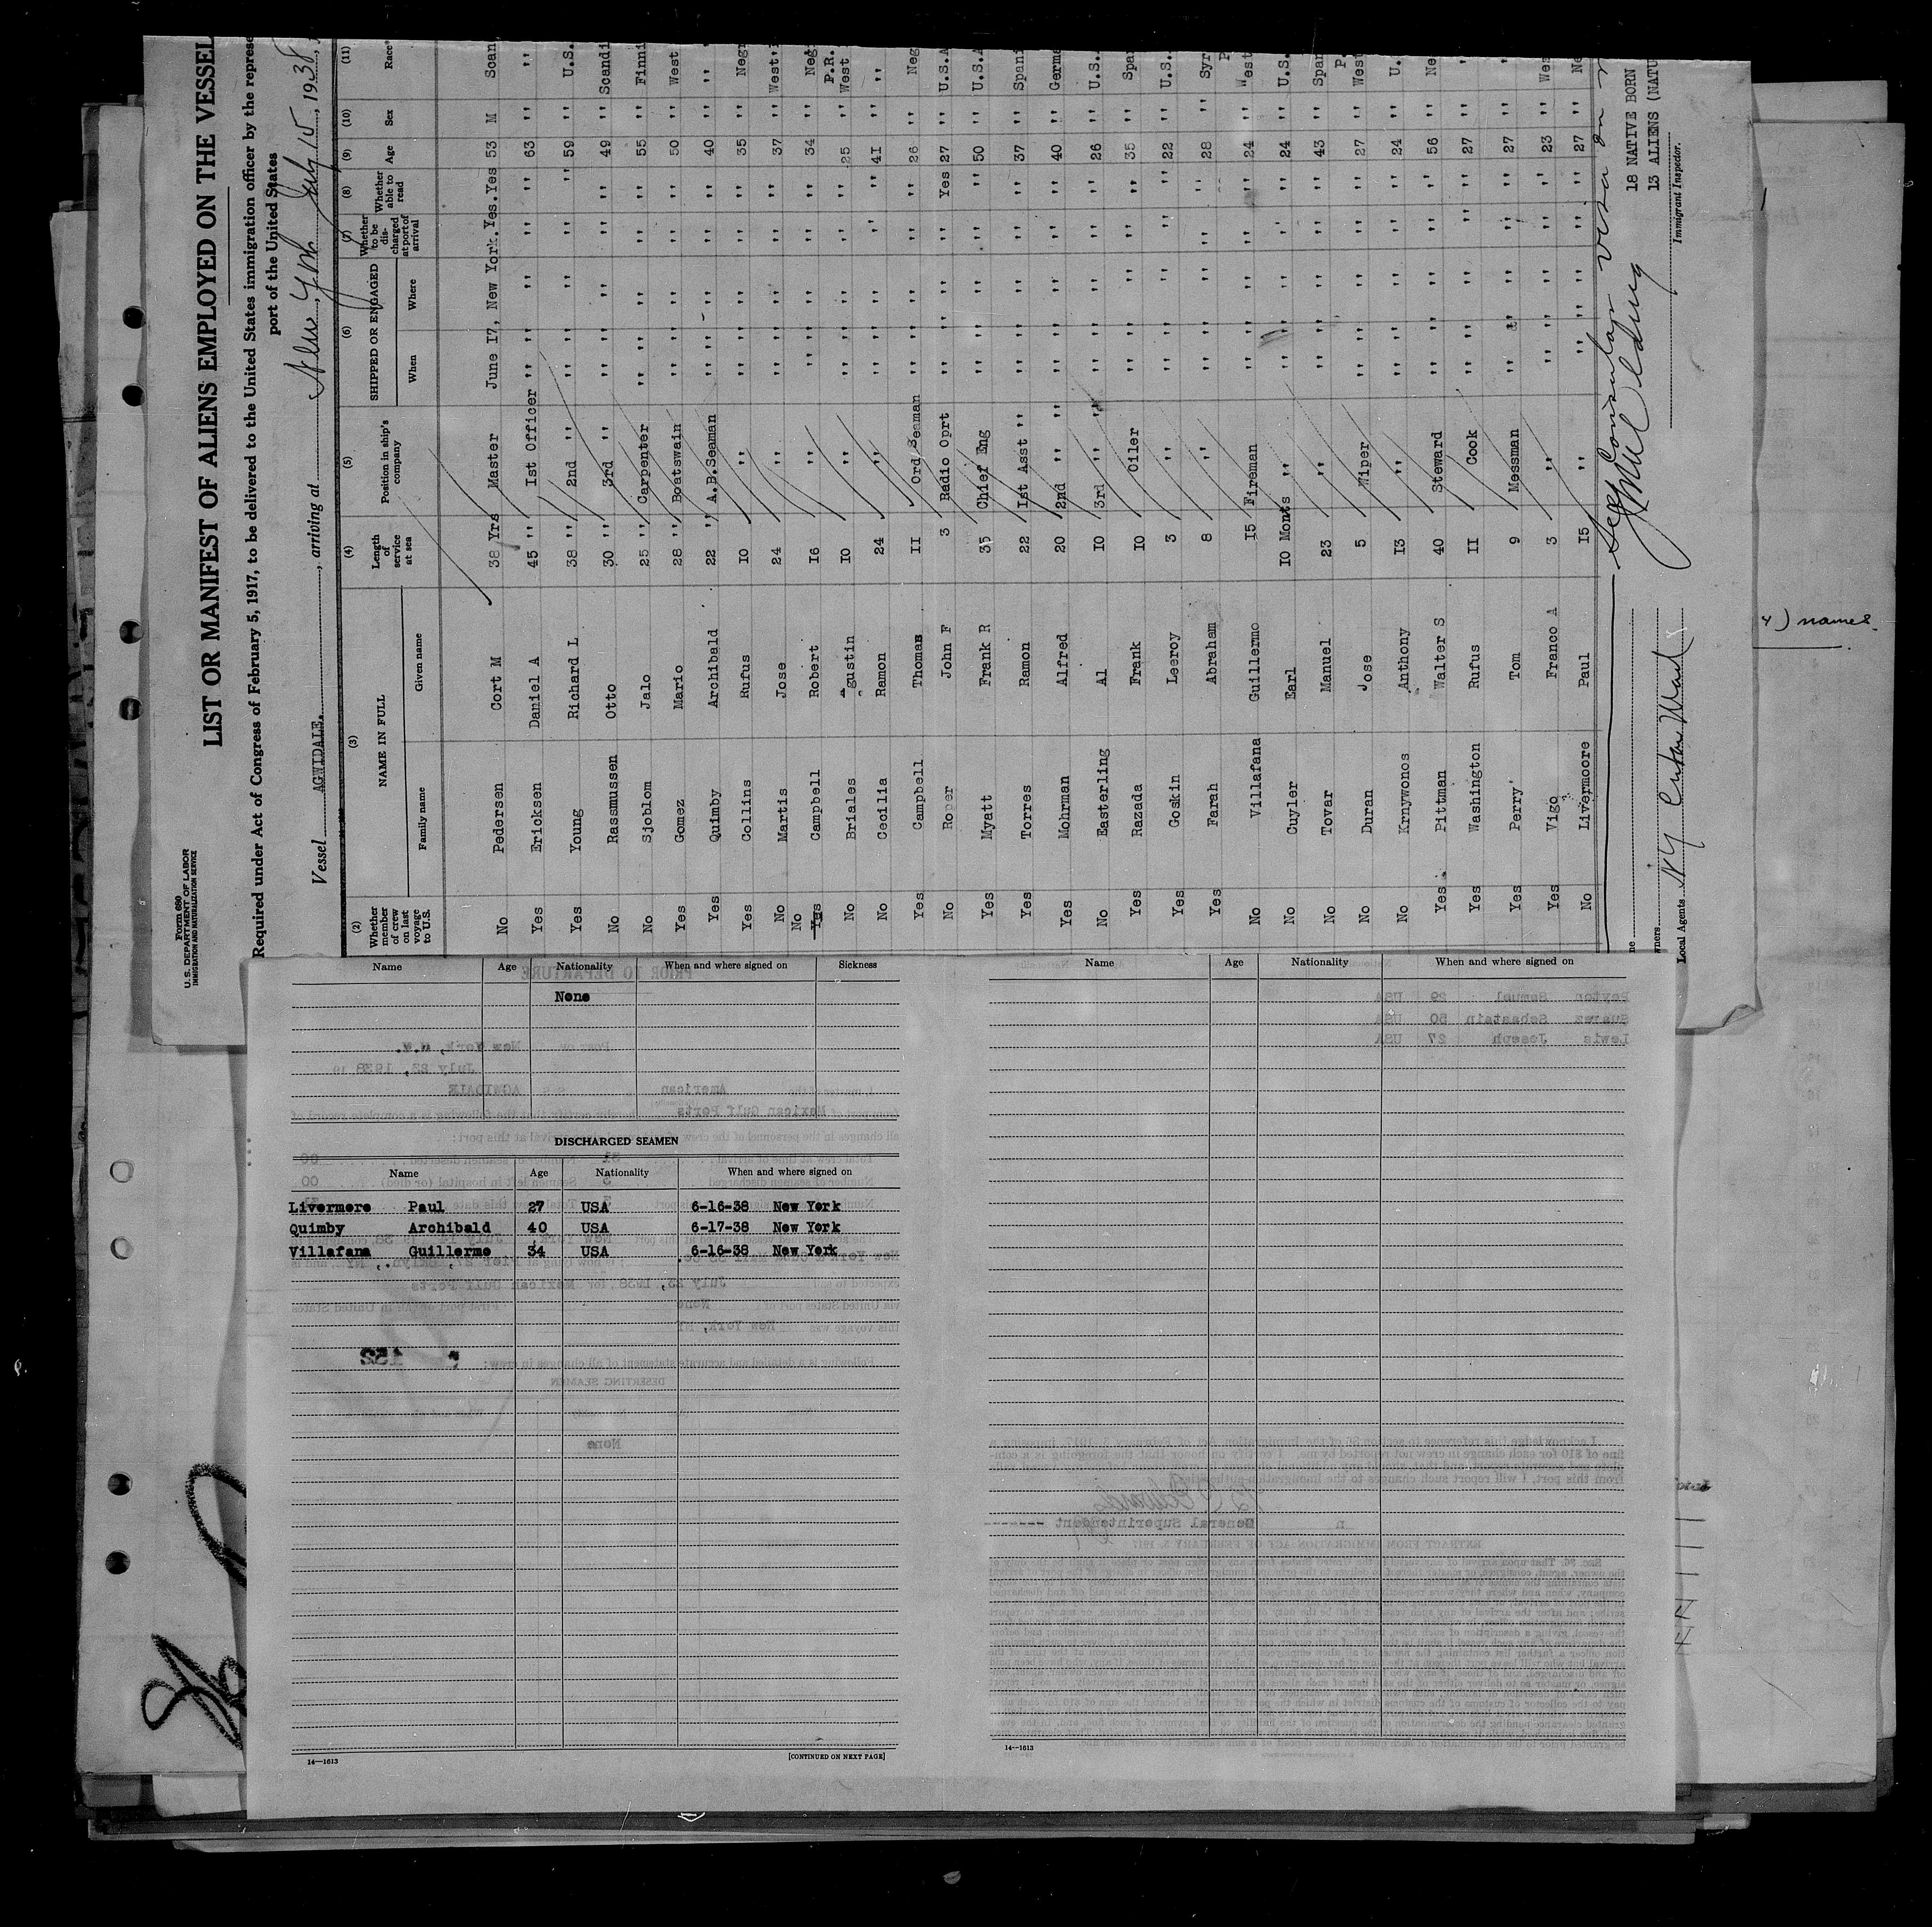 Form 680
U. S. DEPARTMENT OF LABOR
IMMIGRATION AND NATURALIZATION SERVICE
LIST OR MANIFEST OF ALIENS EMPLOYED ON THE VESSEL
Required under Act of Congress of February 5, 1917, to be delivered to the United States immigration officer by the represe
port of the United States
Vessel AGWIDALE. , arriving at New York , July 15 , 1938,
(2) (3) (4) (5) (6) (7) (8) (9) (10) (11)
Whether member of crew on last voyage to U.S. NAME IN FULL Length of service at sea Position in ship's company SHIPPED OR ENGAGED Whether to be discharged at port of arrival Whether able to read Age Sex Race*
Family name Given name When Where
No Pedersen Cort M 38 Yrs Master June 17, New York. Yes. Yes 53 M Scan
Yes Ericksen Daniel A 45 '' 1st Officer '' '' '' '' '' 63 '' ''
Yes Young Richard L 38 '' 2nd '' '' '' '' '' '' 59 '' U.S.
No Rasmussen Otto 30 '' 3rd '' '' '' '' '' '' 49 '' Scandi
No Sjoblom Jalo 25 '' Carpenter '' '' '' '' '' 55 '' Finni
Yes Gomez Mario 28 '' Boatswain '' '' '' '' '' 50 '' West
Yes Quimby Archibald 22 '' A.B.Seaman '' '' '' '' '' 40 '' ''
Yes Collins Rufus 10 '' '' '' '' '' '' 35 '' Negr
No Martis Jose 24 '' '' '' '' '' '' 37 '' West
No Yes Campbell Robert 16 '' '' '' '' '' '' 34 '' Neg
No Briales Agustin 10 '' '' '' '' '' '' 25 '' P.R. West
No Cecilia Ramon 24 '' '' '' '' '' '' 41 '' ''
Yes Campbell Thomas 11 Ord Seaman '' '' '' '' '' 26 '' Neg
No Roper John F 3 Radio Oprt '' '' '' '' Yes 27 '' U.S.A
Yes Myatt Frank R 35 Chief Eng '' '' '' '' '' 50 '' U.S.A
Yes Torres Ramon 22 1st Asst '' '' '' '' '' '' 37 '' Spani
Yes Mohrman Alfred 20 2nd '' '' '' '' '' '' '' 40 '' Germa
No Easterling Al 10 3rd '' '' '' '' '' '' '' 26 '' U.S.
Yes Razada Frank 10 Oiler '' '' '' '' '' 35 '' Spa
Yes Goskin Leeroy 3 '' '' '' '' '' '' 22 '' U.S.
Yes Farah Abraham 8 '' '' '' '' '' '' 28 '' Syr
No Villafana Guillermo 15 Fireman '' '' '' '' '' 24 '' West
No Cuyler Earl 10 Monts '' '' '' '' '' '' 24 '' U.S.
No Tovar Manuel 23 '' '' '' '' '' '' 43 '' Span
No Duran Jose 5 Wiper '' '' '' '' '' 27 '' P. West
No Krnywonos Anthony 13 '' '' '' '' '' '' 24 '' U.
Yes Pittman Walter S 40 Steward '' '' '' '' '' 56 '' Ne
Yes Washington Rufus 11 Cook '' '' '' '' '' 27 '' ''
Yes Perry Tom 9 Messman '' '' '' '' '' 27 '' ''
Yes Vigo Franco A 3 '' '' '' '' '' '' 23 '' Wes
No Livermoore Paul 15 '' '' '' '' '' '' 27 '' Ne
See Consular visa on
18 NATIVE BORN
13 ALIENS (NATU
Immigrant Inspector.
Local Agents N Y Cuba Mail
4) names.
Name Age Nationality When and where signed on Sickness
None
DISCHARGED SEAMEN
Name Age Nationality When and where signed on
Livermore Paul 27 USA 6-16-38 New York
Quimby Archibald 40 USA 6-17-38 New York
Villafana Guillermo 34 USA 6-16-38 New York
14—1613
[CONTINUED ON NEXT PAGE]
Name Age Nationality When and where signed on
14—1613